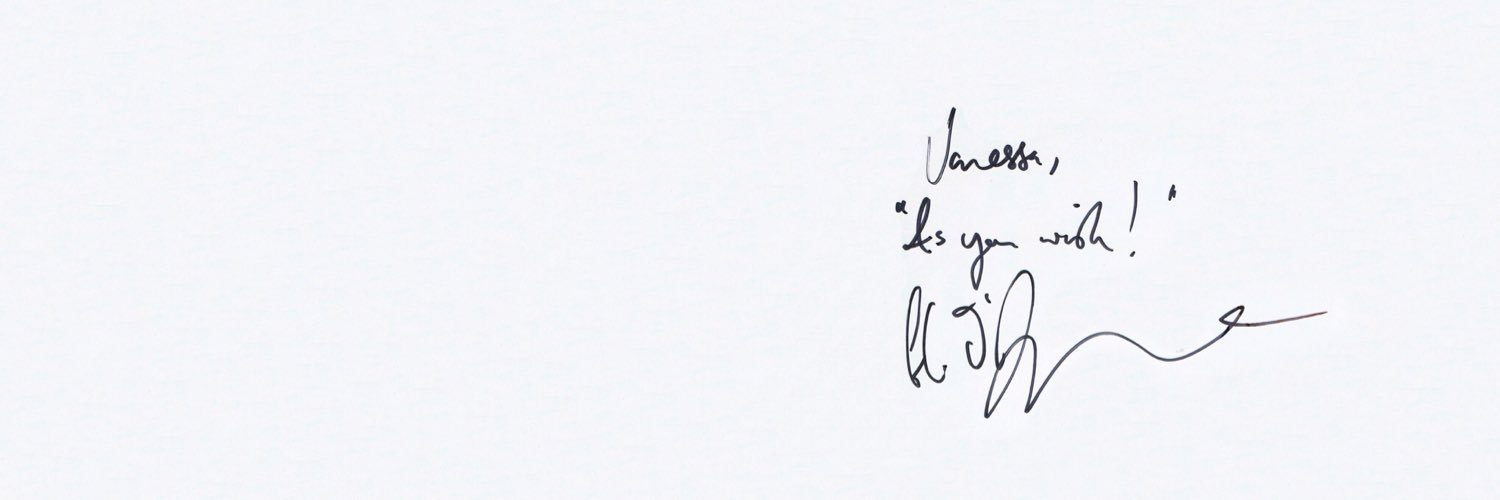 Vanessa,
"As you wish!"